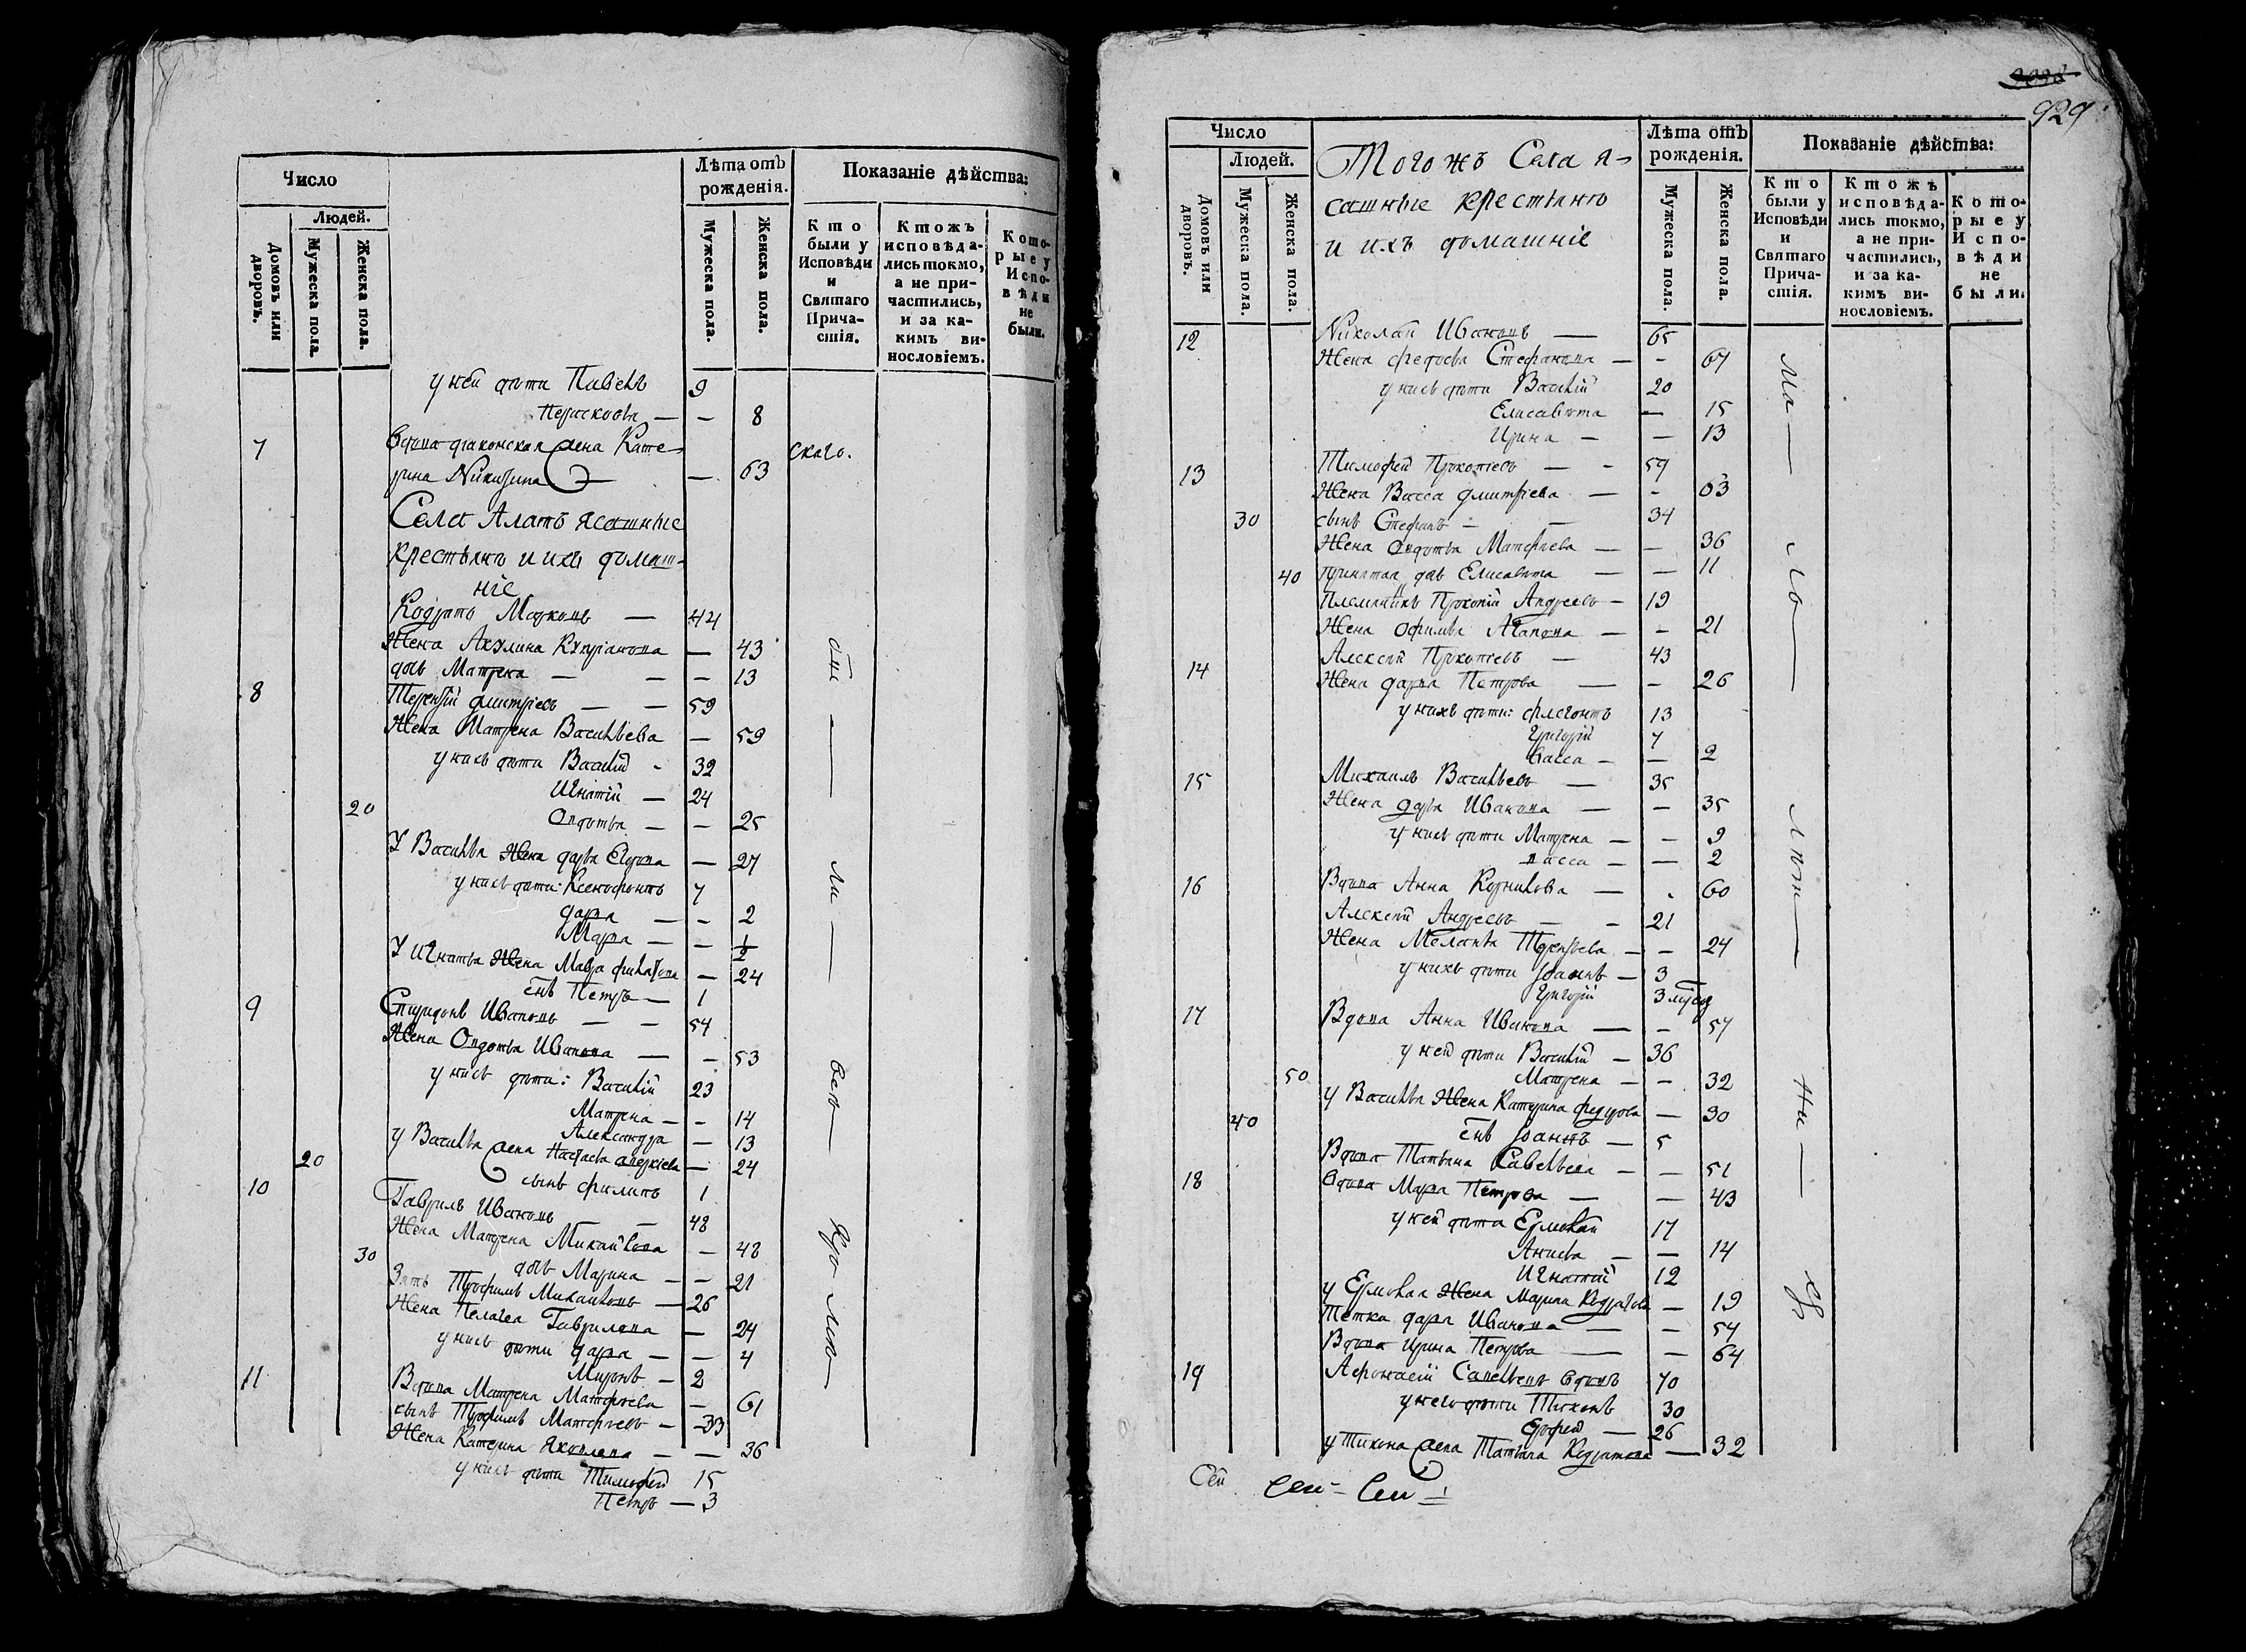 Число
Людей.
Домовъ или дворовъ.
Мужеска пола.
Женска пола.
Лѣта отъ рожденія.
Мужеска пола.
Женска пола.
Показаніе дѣйства:
Кто были у Исповѣди и Святаго Прича-стія.
Ктожъ исповѣда-лись токмо, а не при-частились, и за ка-кимъ ви-нословіемъ.
Кото-рые у Испо-вѣди не были.
у ней дѣти Павелъ 9
Парасковья — — 8
7 Вдова діаконская жена Кате- ского.
рина — 63
Села Алатъ ясашные
крестьяне и ихъ домаш-
ніе
Кодратъ Марковъ — 44
Жена Акулина Кипріанова — 43
дочь Матрена — — — 13
8 Терентій Дмитріевъ — — 59
Жена Матрена Васильева — 59
у нихъ дѣти Василій - 32
Игнатій — 24
20 Овдотья — — 25
У Василья жена Дарья Егорова — 27
у нихъ дѣти: Ксенофонтъ 7
Дарья — — 2
Марья — — 1/2
У Игнатья жена Мавра — 24
снъ Петръ — 1
9 Спиридонъ Ивановъ — — 54
Жена Овдотья Иванова — — 53
у нихъ дѣти: Василій 23
Матрена — - 14
Александра — 13
20 у Василья жена Настасья — 24
сынъ Филипъ 1
10 Гаврилъ Ивановъ — 48
Жена Матрена Михайлова — 48
30 дочь Марина — — 21
Зять Трофимъ Михайловъ — 26
Жена Пелагея Гаврилова — 24
у нихъ дѣти Дарья — — 4
Миронъ — 2
11 Вдова Матрена Матфѣева — 61
сынъ Трофимъ Матфѣевъ — 33
Жена Катерина Яковлева — — 36
у нихъ дѣти Тимофей 15
Петръ — 3
929
Число
Людей.
Домовъ или дворовъ.
Мужеска пола.
Женска пола.
Тогожъ Села я-
сашные крестьяне
и ихъ домашніе
Лѣта отъ рожденія.
Мужеска пола.
Женска пола.
Показаніе дѣйства:
Кто были у Исповѣди и Святаго Прича-стія.
Ктожъ исповѣда-лись токмо, а не при-частились, и за ка-кимъ ви-нословіемъ.
Кото-рые у Испо-вѣди не были.
12 Николай Ивановъ — 65
Жена Федосья Стефанова — - 67
у нихъ дѣти Василій 20
Елисавета — 15
Ирина — — 13
13 Тимофей Прокопіевъ — - 59
Жена Васса Дмитріева — - 63
30 сынъ Стефанъ — — 34
Жена Овдотья Матфѣева — — 36
40 пріятая дочь Елисавета — — 11
Племянникъ Прокопій Андреевъ — 19
Жена Офимья Агапова — - 21
14 Алексей Прокопіевъ — 43
Жена Дарья Петрова — - 26
у нихъ дѣти: Флегонтъ 13
Григорій 7
Васса — — 2
15 Михаилъ Васильевъ — 35
Жена Дарья Иванова — - 35
у нихъ дѣти Матрена — - 9
васса — — 2
16 Вдова Анна Корнилова — - 60
Алексей Андреевъ — - 21
Жена Меланья Терентьева — - 24
у нихъ дѣти Іоаннъ — 3
Григорій 3
17 Вдова Анна Иванова — - 57
у ней дѣти Василій — 36
50 Матрена — - 32
у Василья жена Катерина Федорова — 30
40 снъ Іоаннъ — 5
Вдова Татьяна Савельева — — 51
18 Вдова Марья Петрова — — 43
у ней дѣти Ермолай 17
Анисья — — 14
Игнатій 12
у Ермолая жена Марина — 19
Тетка Дарья Иванова — — 54
Вдова Ирина Петрова — — 64
19 Афонасій Савельевъ вдовъ 70
у него дѣти Тихонъ 30
Ерофей — 26
у Тихона жена Татьяна Кодратова — 32
Сей